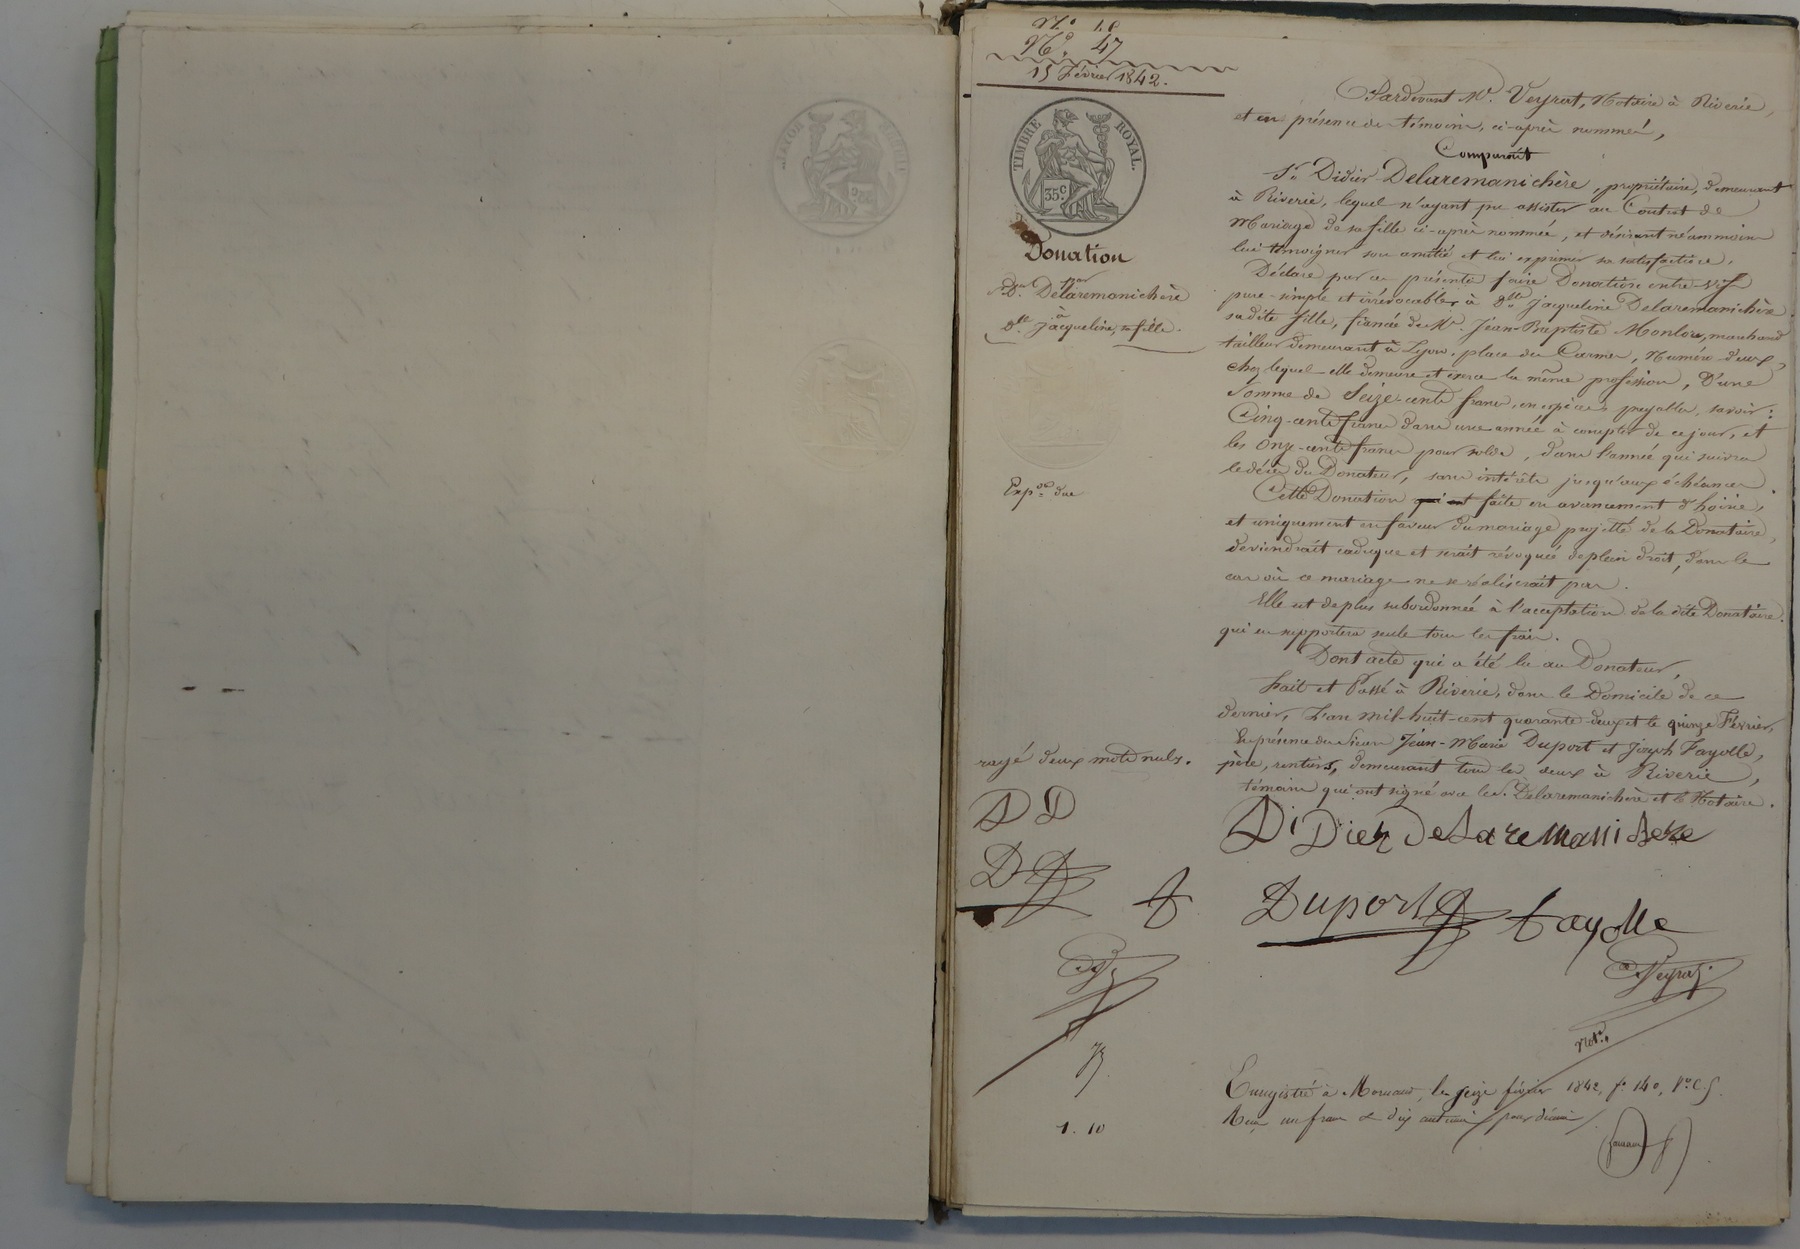 N.° 18
N.° 47
15 Février 1842.
TIMBRE ROYAL.
35.C
Donation
par
S.r D.er Delaremanichère
à
D.lle Jacqueline, sa fille.
Exp.on due
rayé deux mots nuls.
D D
D D
F
1. 10
Pardevant M.e Veyrat, Notaire à Riverie,
et en présence des témoins, ci-après nommés,
Comparaît
S.r Didier Delaremanichère, propriétaire, demeurant
à Riverie, lequel n'ayant pu assister au Contrat de
Mariage de sa fille ci-après nommée, et désirant néanmoins
lui témoigner son amitié et lui exprimer sa satisfaction,
Déclare par ces présentes faire Donation entre vifs
pure-simple et irrévocable, à D.lle Jacqueline Delaremanichère
sadite fille, fiancée du M.r Jean-Baptiste Monlou, marchand
tailleur demeurant à Lyon, place des Carmes, Numéro deux,
chez lequel elle demeure et exerce la même profession, D'une
Somme de Seize-cents francs, en espèces payables, savoir:
Cinq-cents francs dans une année à compter de ce jour, et
les Onze-cents francs pour solde, dans l'année qui suivra
le décès du Donateur, sans intérêts jusqu'aux échéances.
Cette Donation qui est faite en avancement d'hoirie,
et uniquement en faveur du mariage projetté de la Donataire,
deviendrait caduque et serait révoquée de plein droit, dans le
cas où ce mariage ne se réaliserait pas.
Elle est de plus subordonnée à l'acceptation de la dite Donataire.
qui en supportera seule tous les frais.
Dont acte qui a été lu au Donateur,
Fait et Passé à Riverie, dans le Domicile de ce
dernier, L'an mil-huit-cent quarante-deux et le quinze Février,
En présence des Sieurs Jean-Marie Duport et Joseph Fayolle,
père, rentiers, demeurant tous les deux à Riverie,
témoins qui ont signé avec le S. Delaremanichère et le Notaire.
DiDier DeLaremanichere
Duport Fayolle
Veyrat
Not.re
Enregistré à Mornant, le seize février 1842, f.° 140, V.° C. 5.
Reçu un franc & dix centimes pour décime